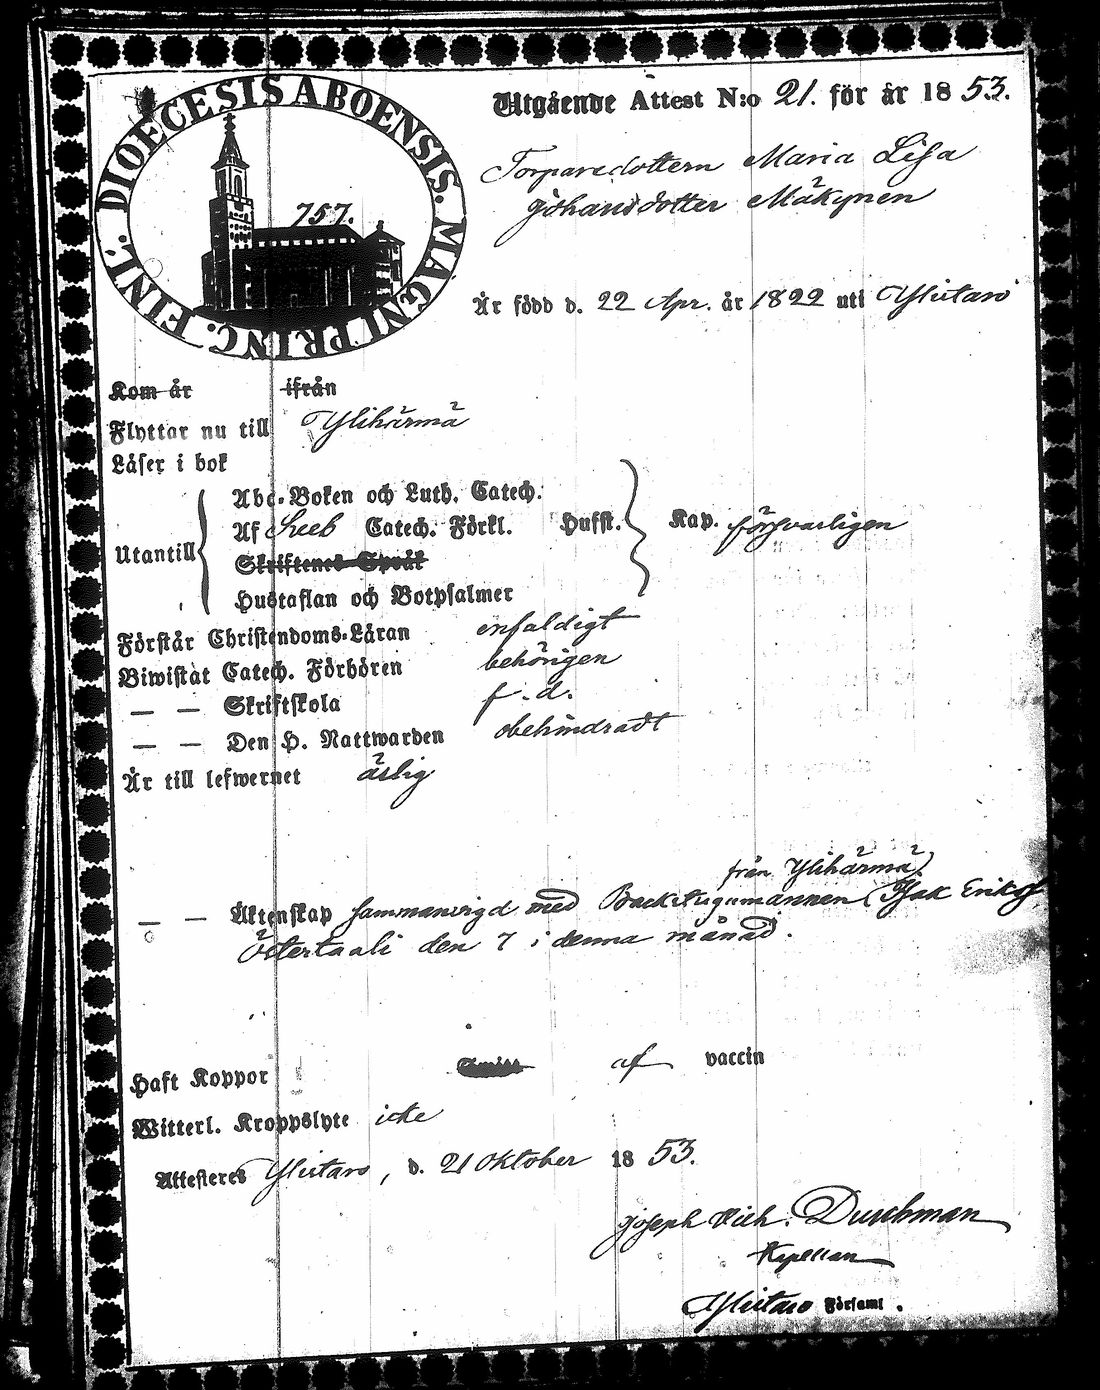 DIOECESIS ABOENSIS. MAGNI PRINC. FINL.
757.
Utgående Attest N:o 21. för år 1853.
Torparedottern Maria Lisa
Johansdotter Mäkynen
Är född d. 22 Apr. år 1822 uti Ylistaro
Kom år ifrån
Flyttar nu till Ylihärmä
Läser i bok
Abc-Boken och Luth. Catech.
Utantill Af Sveb Catech. Förkl. Husst. Kap. försvarligen
Skriftenes Språk
Hustaflan och Botpsalmer
Förstår Christendoms-Läran enfaldigt
Biwistat Catech. Förhören behörigen
— — Skriftskola f. d.
— — Den H. Nattwarden obehindradt
Är till lefwernet ärlig
från Ylihärmä
— — Äktenskap sammanvigd med Backstugumannen Isak Eriks
Östertaali den 7 i denna månad.
Haft Koppor af vaccin
Witterl. Kroppslyte icke
Attesteres Ylistaro, d. 21 Oktober 1853.
Joseph Wilh. Durchman
Kapellan
Ylistaro Församl.